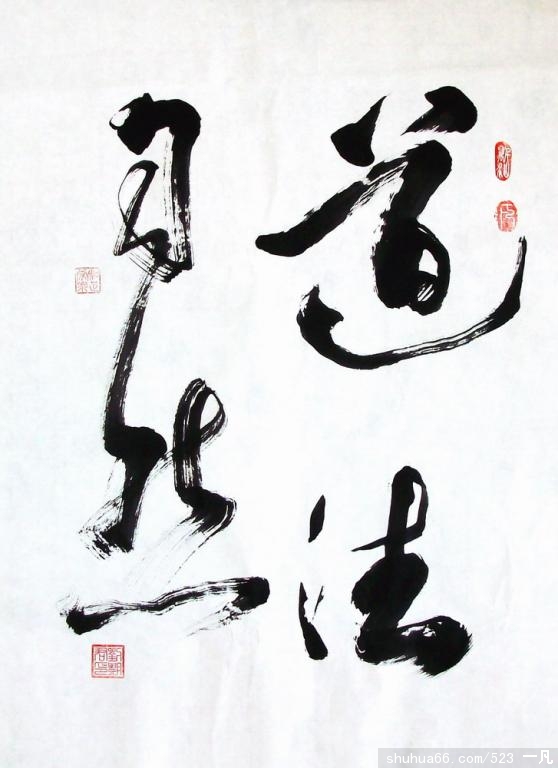 道法
自然
shuhua66.com/523 一凡